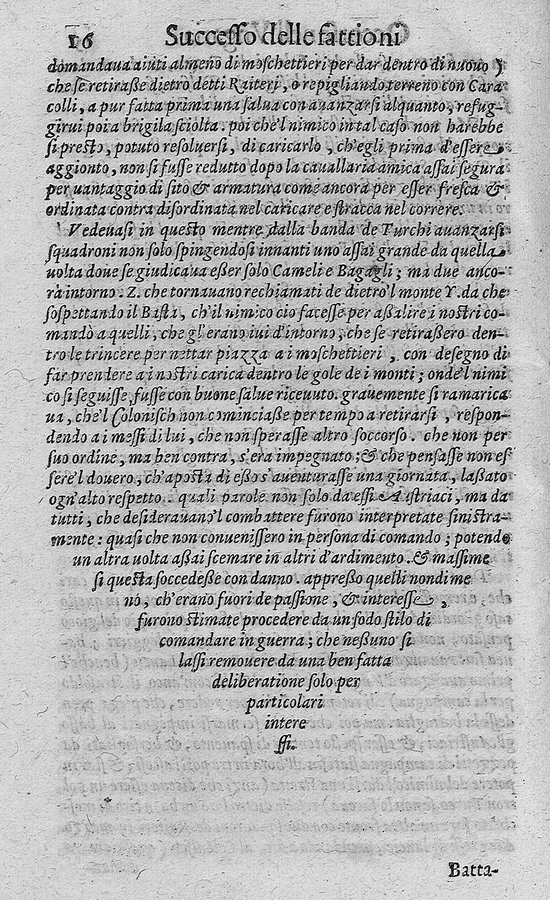 16 Successo delle fattioni
domandaua aiuti almeno di moschettieri per dar dentro di nuouo,
che se retiraße dietro detti Raiteri, o repigliando terreno con Cara
colli, a pur fatta prima una salua con auanzarsi alquanto, refug-
girui poi a briglia sciolta. poi che'l nimico in tal caso non harebbe
si presto, potuto resoluersi, di caricarlo, ch'egli prima d'essere
aggionto, non si fusse redutto dopo la cauallaria amica assai segura
per uantaggio di sito & armatura come ancora per esser fresca &
ordinata contra disordinata nel caricare e stracca nel correre.
Vedeuasi in questo mentre dalla banda de Turchi auanzarsi
squadroni non solo spingendosi innanti uno assai grande da quella
uolta doue se giudicaua eßer solo Cameli e Bagagli; ma due anco-
rà intorno. Z. che tornauano rechiamati de dietro'l monte Y. da che
sospettando il Basta, ch'il nimico cio facesse per aßalire i nostri co-
mandò a quelli, che gl'erano iui d'intorno, che se retiraßero den-
tro le trincere per nettar piazza a i moschettieri, con desegno di
far prendere a i nostri carica dentro le gole de i monti; onde'l nimi
co si seguisse, fusse con buone salue riceuuto. grauemente si ramarica
ua, che'l Colonisch non cominciaße per tempo a retirarsi, respon-
dendo a i messi di lui, che non sperasse altro soccorso. che non per
suo ordine, ma ben contra, s'era impegnato; & che pensasse non es
sere'l douero, ch'aposta di eßo s'auenturasse una giornata, laßato
ogn'alto respetto. quali parole non solo da essi Austriaci, ma da
tutti, che desiderauano'l combattere furono interpretate sinistra-
mente: quasi che non conuenissero in persona di comando; potendo
un altra uolta aßai scemare in altri d'ardimento. & massime
si questa soccedeße con danno. appreßo quelli nondime
no, ch'erano fuori de passione, & interesse,
furono stimate procedere da un sodo stilo di
comandare in guerra; che neßuno si
lassi remouere da una ben fatta
deliberatione solo per
particolari
intere
ssi.
Batta-